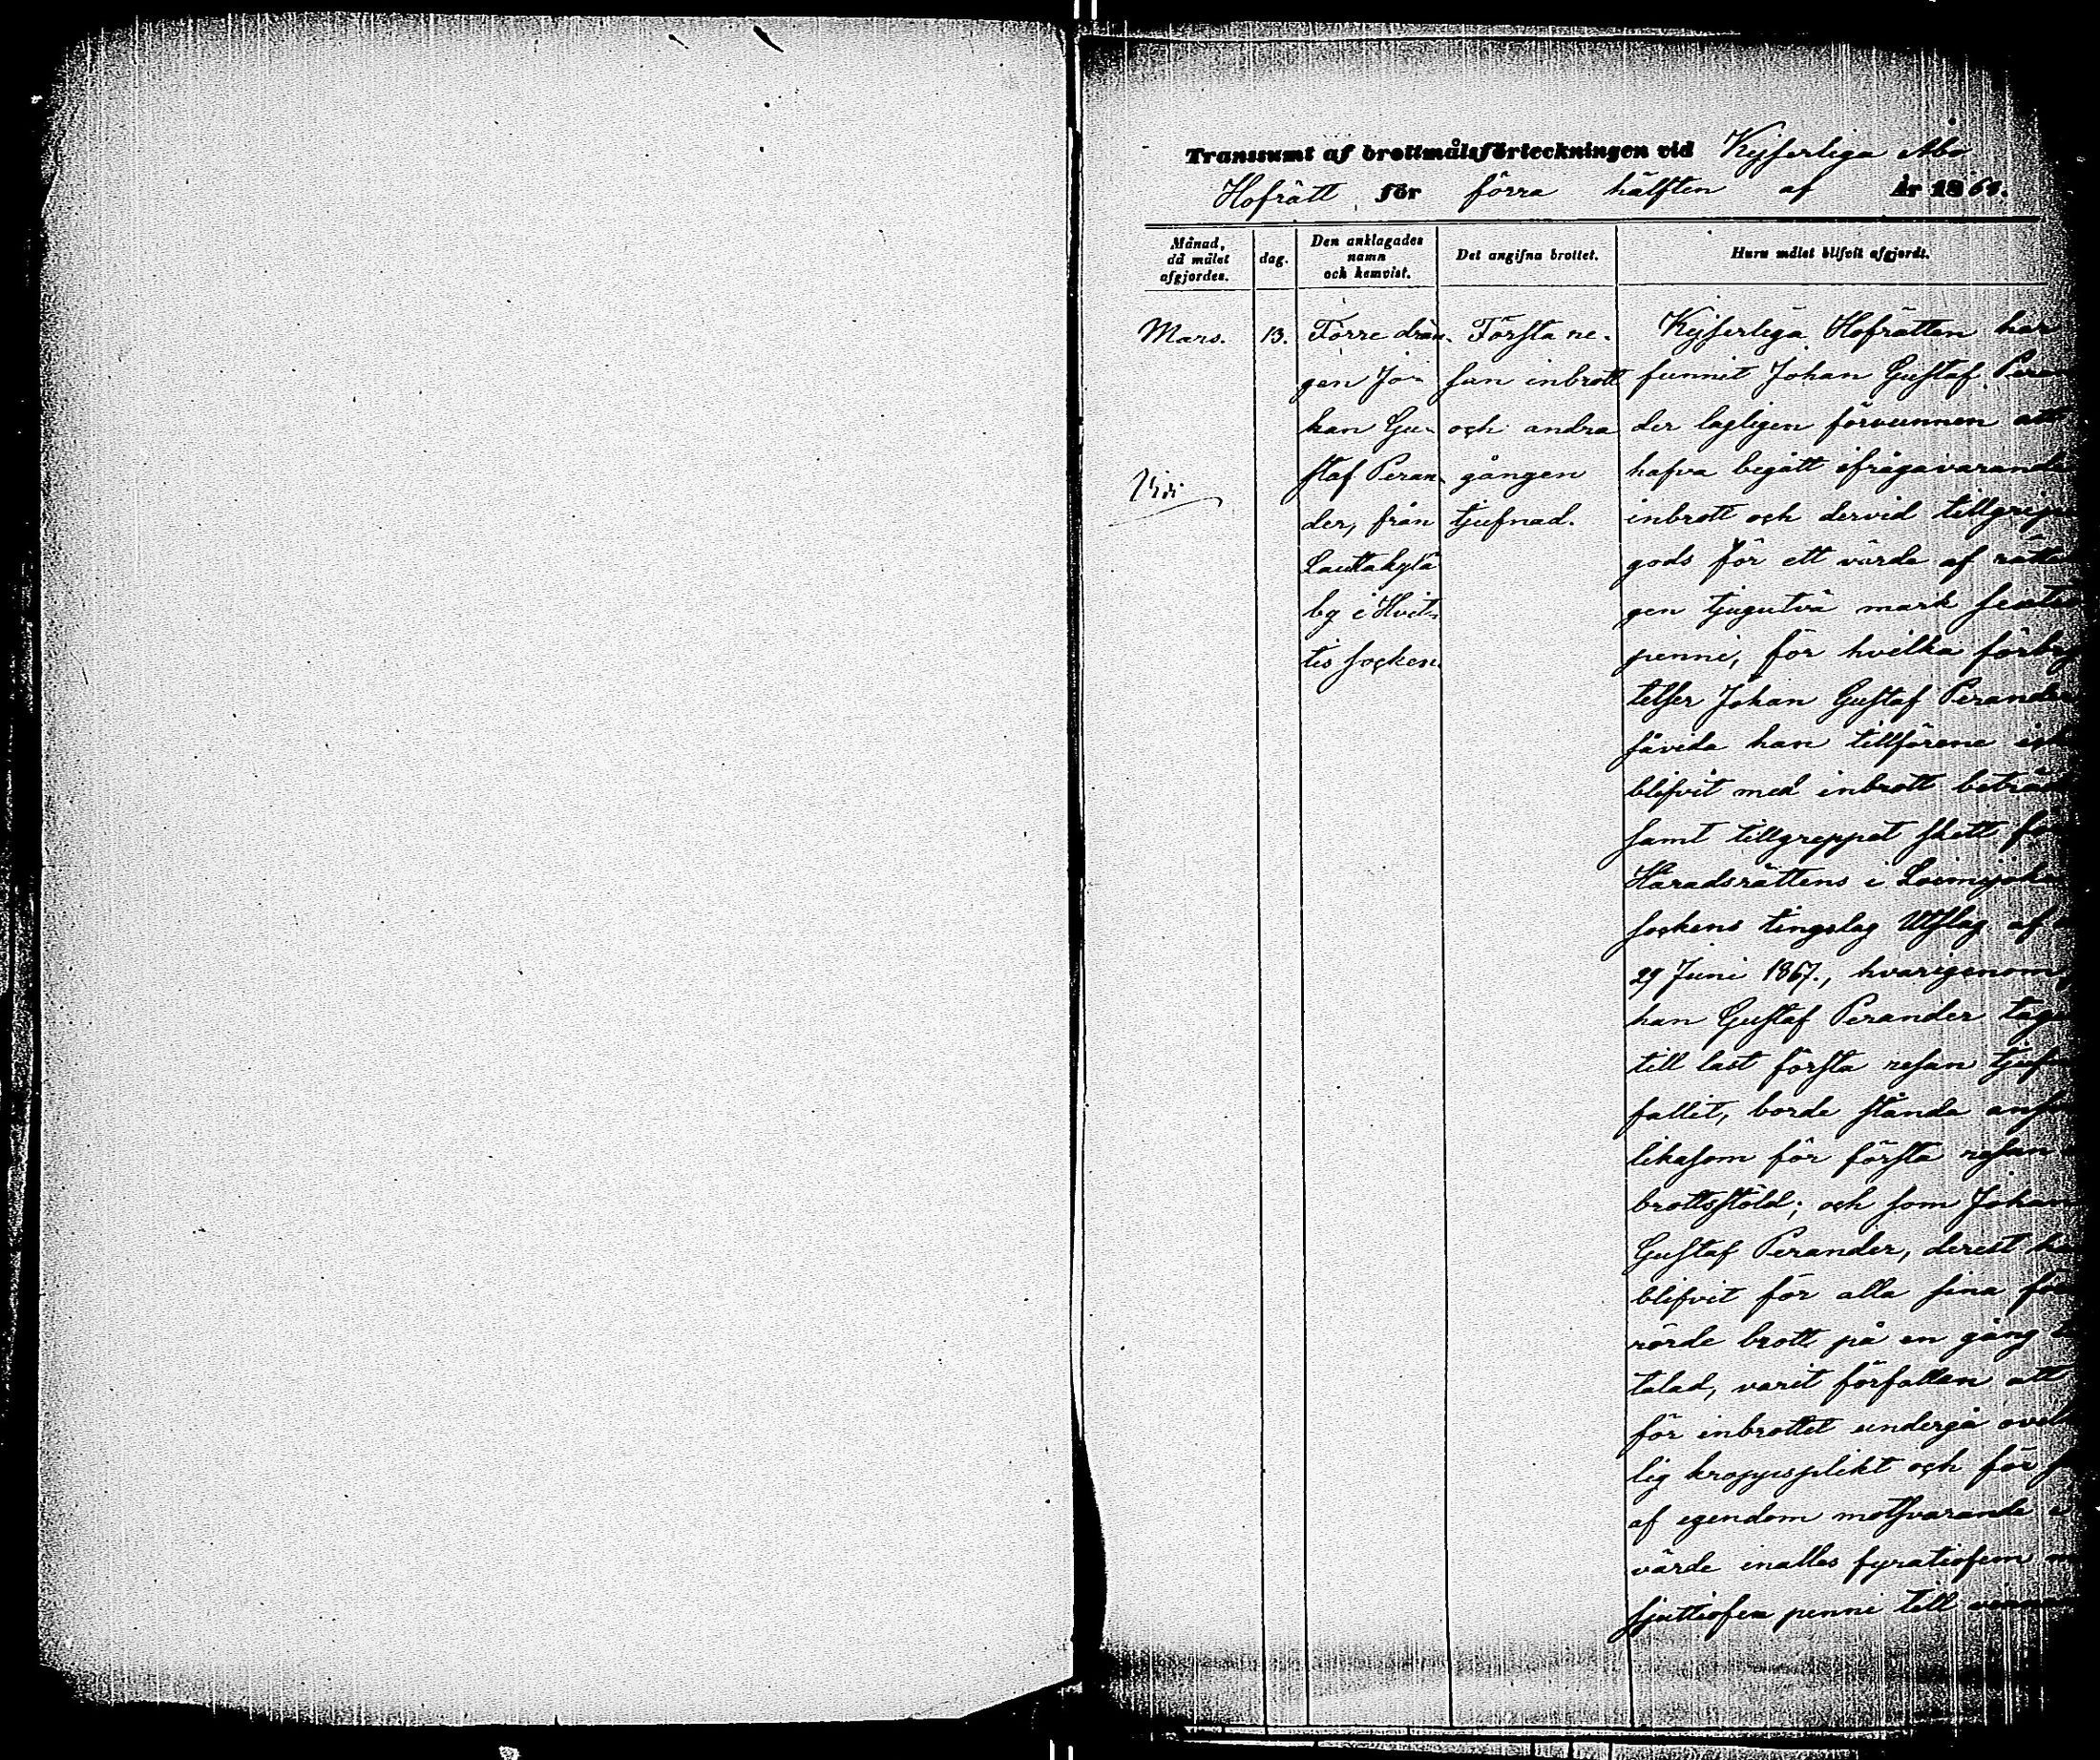 Transsumt af brottmålsförteckningen vid Kejserliga Åbo
Hofrätt för förra hälften af år 1868.
Månad, då målet afgjordes.
dag.
Den anklagades namn och hemvist.
Det angifna brottet.
Huru målet blifvit afgjordt.
Mars.
13.
Förre drän-
gen Jo-
han Gu-
staf Peran-
der, från
Lauttakylä
by i Hvit-
tis socken.
Första re-
san inbrott
och andra
gången
tjufnad.
Kejserliga Hofrätten har
funnit Johan Gustaf Peran
der lagligen förvunnen att
hafva begått ifrågavarande
inbrott och dervid tillgripit
gods för ett värde af
gen tjugutvå mark
penni, för hvilka förbry
telser Johan Gustaf Perander
såvida han tillförene
blifvit med inbrott beträdd
samt tillgreppet skett
Häradsrättens i Loimijoki
sockens tingslag Utslag af
29 Juni 1867., hvarigenom
han Gustaf Perander
till last första resan
fallit, borde stånda
likasom för första resan
brottsstöld; och som Johan
Gustaf Perander, derest
blifvit för alla sina
rörde brott på en gång
talad, varit förfallen att
för inbrottet undergå
lig kroppsplikt och för
af egendom motsvarande
värde inalles fyratiofem
sjuttiofem penni till